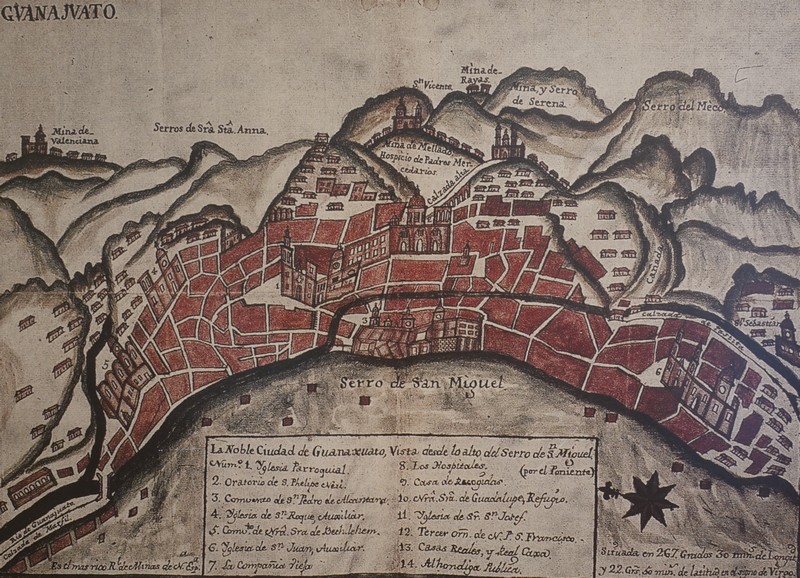 GVANAJVATO.
Mina de
Valenciana
Serros de Srâ Stâ Anna.
Sn Vicente
Mina de
Rayas
Mina, y Serro
de Serena
Serro del Meco
Mina de Mellado
Hospicio de Padres Mer-
cedarios.
Calzada alta
Cañada
Calzada de
Sn Sebastian
1
5
6
Serro de San Miguel
La Noble Ciudad de Guanaxuato, Vista desde lo alto del Serro de Sn Miguel
(por el Poniente)
Numo 1. Yglesia Parroquial.
2. Oratorio de S. Phelipe Neri.
3. Comvento de Sn Pedro de Alcantara.
4. Yglesia de Sn Roque, Auxiliar.
5. Comvto de Nrâ. Srâ de Bethlehem.
6. Yglesia de Sn Juan, Auxiliar.
7. La Compañia Vieja
8. Los Hospitales.
9. Casa de Recogidas
10. Nrâ. Srâ. de Guadalupe, Refugio.
11. Yglesia de Sr. Sn Josef.
12. Tercer Orn. de N. P. S. Francisco.
13. Casas Reales, y Real Caxa.
14. Alhondiga Publica.
Rio de Guanajuato
Calzada de Marfil
Es el mas rico Rl de Minas de N. Esp.
Situada en 267. Grados 50 min. de Longit.
y 22. Grs. 50 min. de latitud en el signo de Virgo.